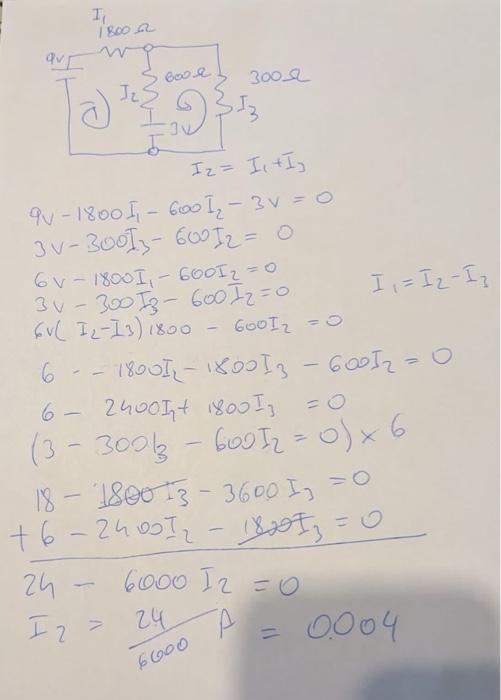 I1
1800 Ω
9v
600Ω
300Ω
I2
I3
3V
I2 = I1 + I3
9v - 1800 I1 - 600 I2 - 3v = 0
3v - 300I3 - 600 I2 = 0
6v - 1800I1 - 600I2 = 0
3v - 300 I3 - 600 I2 = 0
I1 = I2 - I3
6v( I2 - I3) 1800 - 600I2 = 0
6 - - 1800I2 - 1800 I3 - 600 I2 = 0
6 - 2400I2 + 1800 I3 = 0
(3 - 300I3 - 600 I2 = 0) × 6
18 - 1800 I3 - 3600 I3 = 0
+ 6 - 2400I2 - 1800I3 = 0
24 - 6000 I2 = 0
I2 = 24/6000 A = 0.004